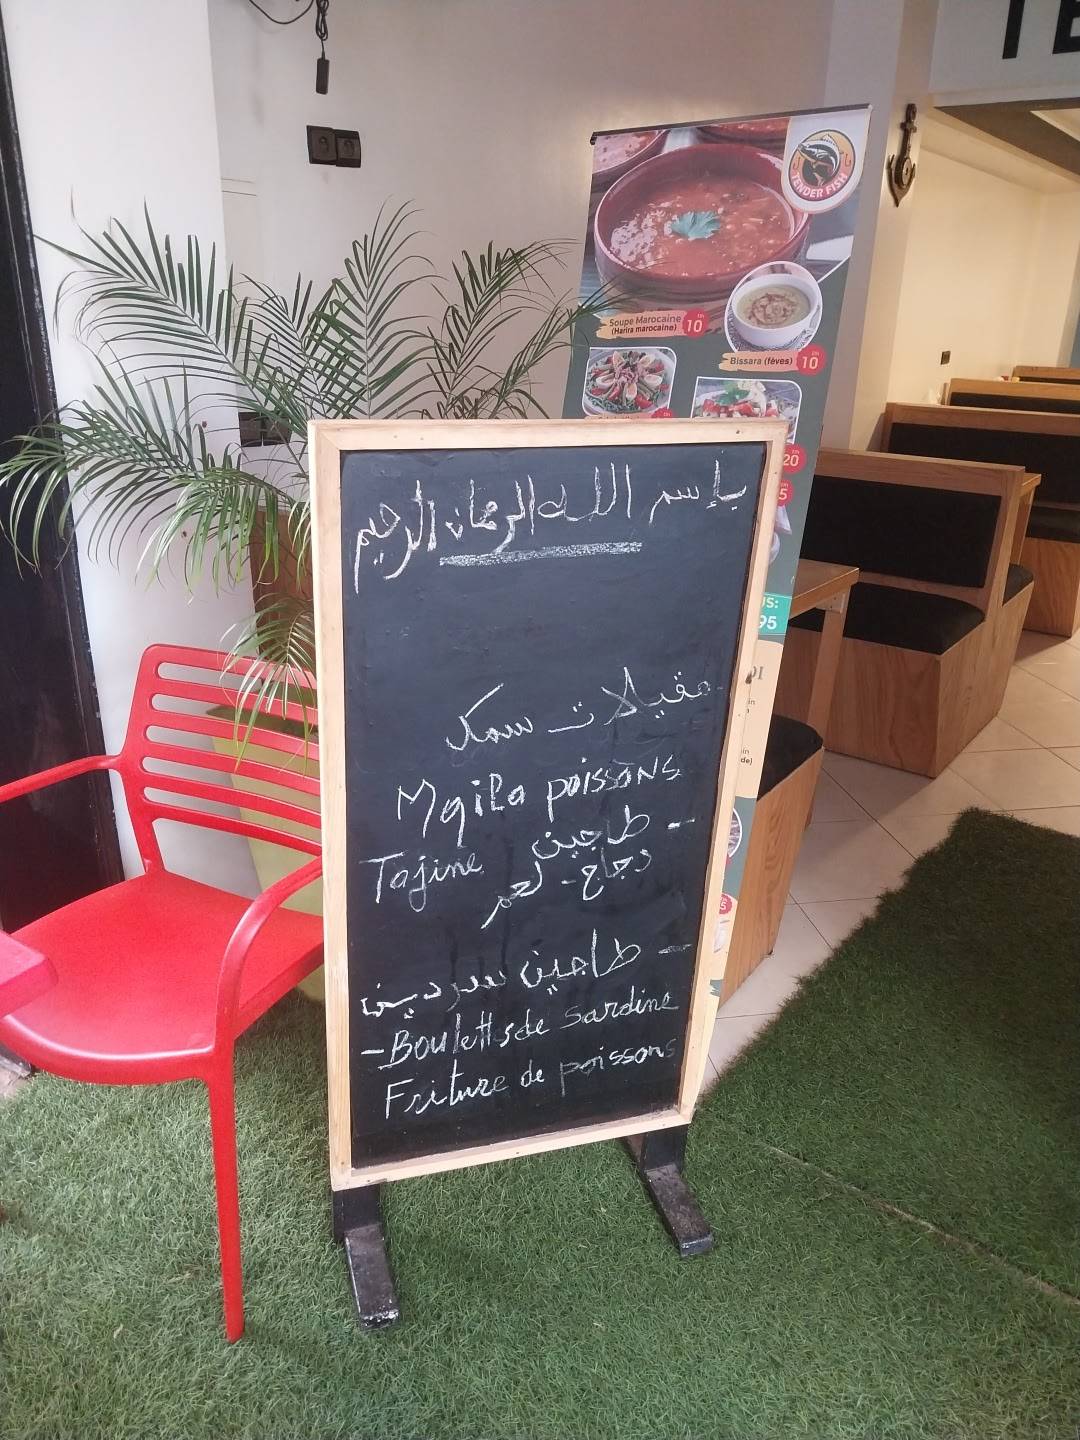 TE
TENDER FISH
Soupe Marocaine
(Harira marocaine)
DH
10
Bissara (fèves)
DH
10
20
5
US:
95
بإسم اللـه الرحمان الرحيم
مقيلات سمك
Mqila poissons
- طاجين
Tajine
دجاج - لحم
- طاجين سردين
- Boulettes de sardine
Friture de poissons